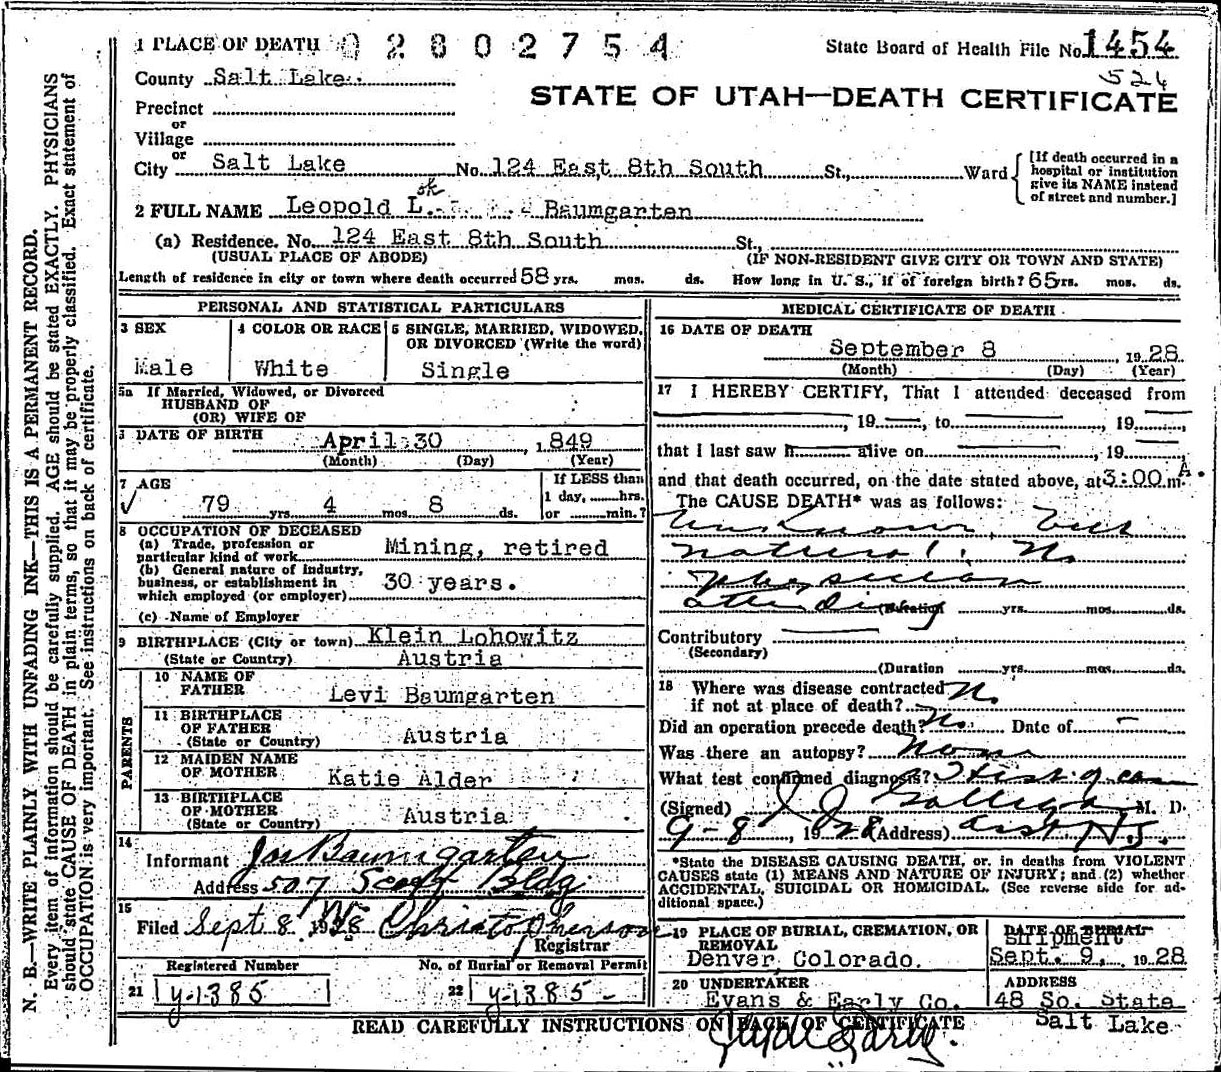 1 PLACE OF DEATH 0 2 8 0 2 7 5 4 State Board of Health File No. 1454
County Salt Lake. 524
STATE OF UTAH—DEATH CERTIFICATE
Precinct
or
Village
or
City Salt Lake No. 124 East 8th South St., Ward
[If death occurred in a
hospital or institution
give its NAME instead
of street and number.]
ok
2 FULL NAME Leopold L. Baumgarten
(a) Residence. No. 124 East 8th South St.,
(USUAL PLACE OF ABODE) (IF NON-RESIDENT GIVE CITY OR TOWN AND STATE)
Length of residence in city or town where death occurred 58 yrs. mos. ds. How long in U. S., if of foreign birth? 65 yrs. mos. ds.
PERSONAL AND STATISTICAL PARTICULARS
3 SEX 4 COLOR OR RACE 5 SINGLE, MARRIED, WIDOWED,
OR DIVORCED (Write the word)
Male White Single
5a If Married, Widowed, or Divorced
HUSBAND OF
(OR) WIFE OF
DATE OF BIRTH April 30, 1849
(Month) (Day) (Year)
7 AGE If LESS than
1 day, hrs.
✓ 79 yrs. 4 mos. 8 ds. or min.?
8 OCCUPATION OF DECEASED
(a) Trade, profession or
particular kind of work Mining, retired
(b) General nature of industry,
business, or establishment in
which employed (or employer) 30 years.
(c) Name of Employer
9 BIRTHPLACE (City or town) Klein Lohowitz
(State or Country) Austria
PARENTS
10 NAME OF
FATHER Levi Baumgarten
11 BIRTHPLACE
OF FATHER
(State or Country) Austria
12 MAIDEN NAME
OF MOTHER Katie Alder
13 BIRTHPLACE
OF MOTHER
(State or Country) Austria
14
Informant Jos Baumgarten
Address 507 Scott Bldg
15
Filed Sept 8 1928 Christopherson
Registrar
Registered Number No. of Burial or Removal Permit
21 y-1385 22 y-1385-
MEDICAL CERTIFICATE OF DEATH
16 DATE OF DEATH
September 8, 1928
(Month) (Day) (Year)
17 I HEREBY CERTIFY, That I attended deceased from
, 19 , to , 19 ,
that I last saw h alive on , 19
and that death occurred, on the date stated above, at 3:00 A. m.
The CAUSE DEATH* was as follows:
Unknown, but
natural. No
physician
attending (Duration yrs. mos. ds.
Contributory
(Secondary)
(Duration yrs. mos. ds.
18 Where was disease contracted
if not at place of death? No.
Did an operation precede death? No. Date of —
Was there an autopsy? None
What test confirmed diagnosis?
(Signed) M. D.
9-8, 1928 (Address)
*State the DISEASE CAUSING DEATH, or, in deaths from VIOLENT
CAUSES state (1) MEANS AND NATURE OF INJURY; and (2) whether
ACCIDENTAL, SUICIDAL OR HOMICIDAL. (See reverse side for ad-
ditional space.)
19 PLACE OF BURIAL, CREMATION, OR
REMOVAL
Denver, Colorado.
DATE OF BURIAL
Shipment
Sept. 9, 1928
20 UNDERTAKER
Evans & Early Co.
ADDRESS
48 So. State
Salt Lake
READ CAREFULLY INSTRUCTIONS ON BACK OF CERTIFICATE
N. B.—WRITE PLAINLY WITH UNFADING INK—THIS IS A PERMANENT RECORD.
Every item of information should be carefully supplied. AGE should be stated EXACTLY. PHYSICIANS
should state CAUSE OF DEATH in plain terms, so that it may be properly classified. Exact statement of
OCCUPATION is very important. See instructions on back of certificate.